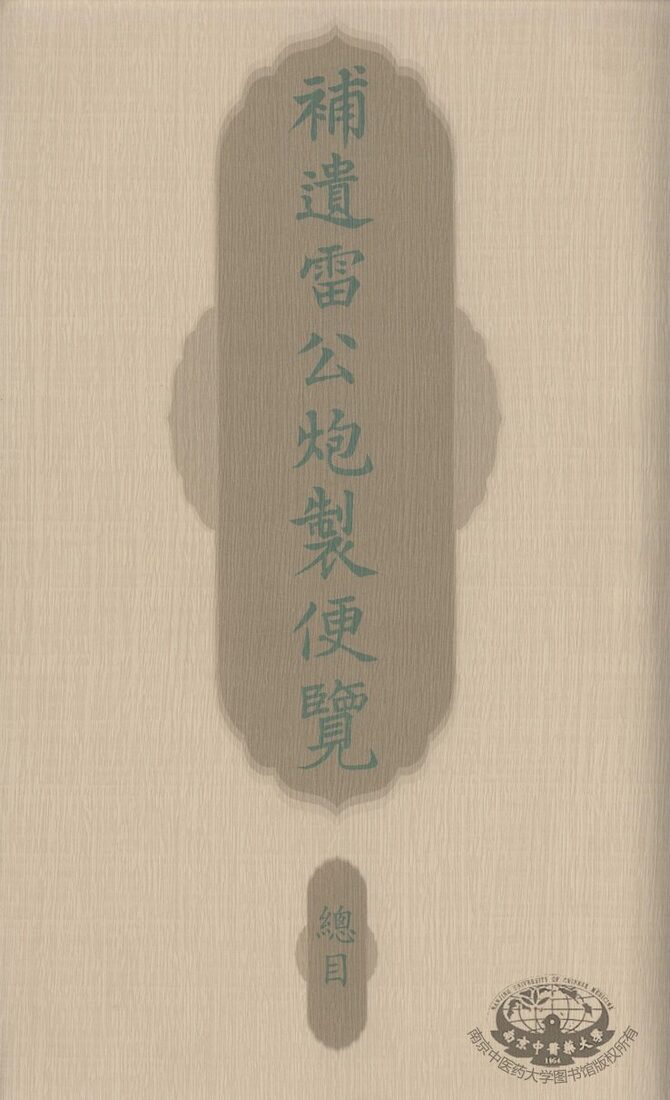 補遺雷公炮製便覽
總目
NANJING UNIVERSITY OF CHINESE MEDICINE
南京中醫藥大學
1954
南京中医药大学图书馆版权所有